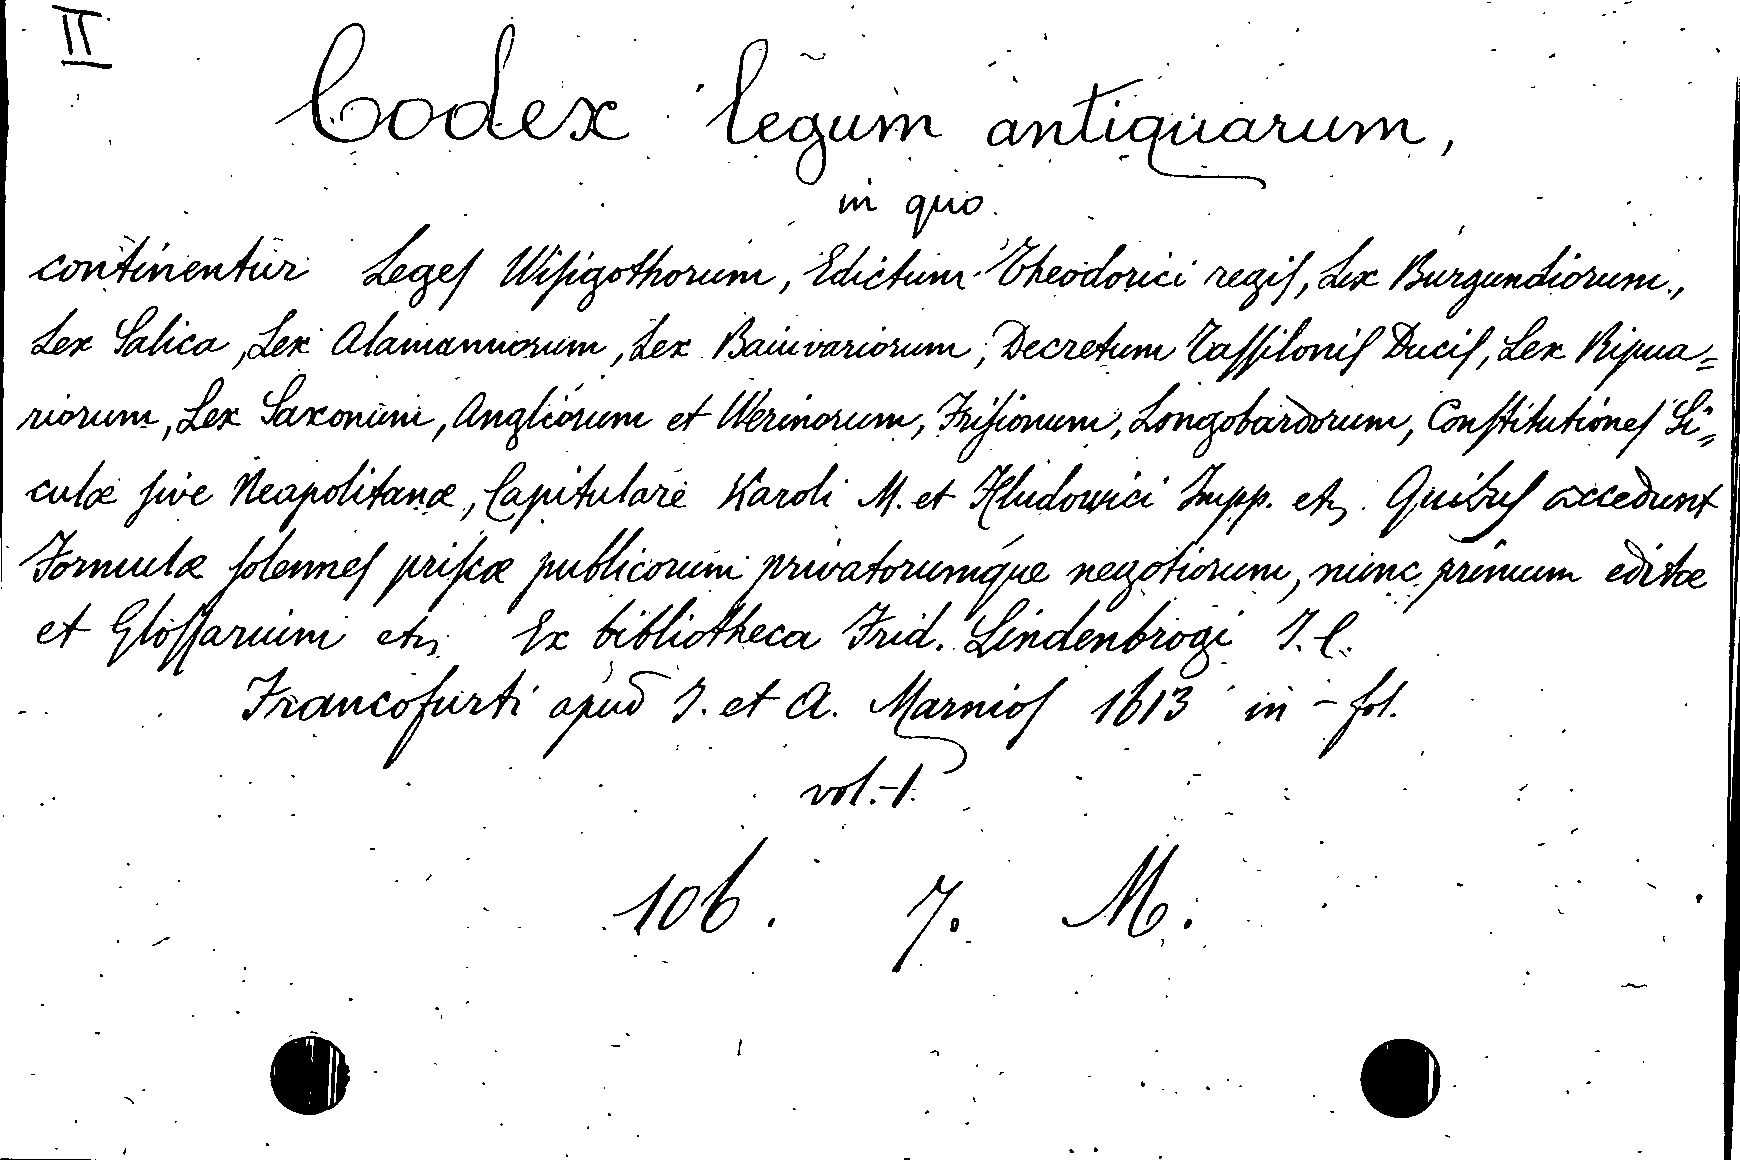 II
Codex legum antiquarum,
in quo
continentur Leges Wisigothorum, Edictum Theodorici regis, Lex Burgundiorum,
Lex Salica, Lex Alamannorum, Lex Baiuvariorum, Decretum Tassilonis Ducis, Lex Ripua=
riorum, Lex Saxonum, Angliorum et Werinorum, Frisionum, Longobardorum, Constitutiones Si=
culæ sive Neapolitanæ, Capitulare Karoli M. et Hludowici Impp. etc. Quibus accedunt
Formulæ solennes priscæ publicorum privatorumque negotiorum, nunc primum editæ
et Glossarium etc. Ex bibliotheca Frid. Lindenbrogi I.C.
Francofurti apud I. et A. Marnios 1613 in-fol.
vol.-1.
106. 7. M.